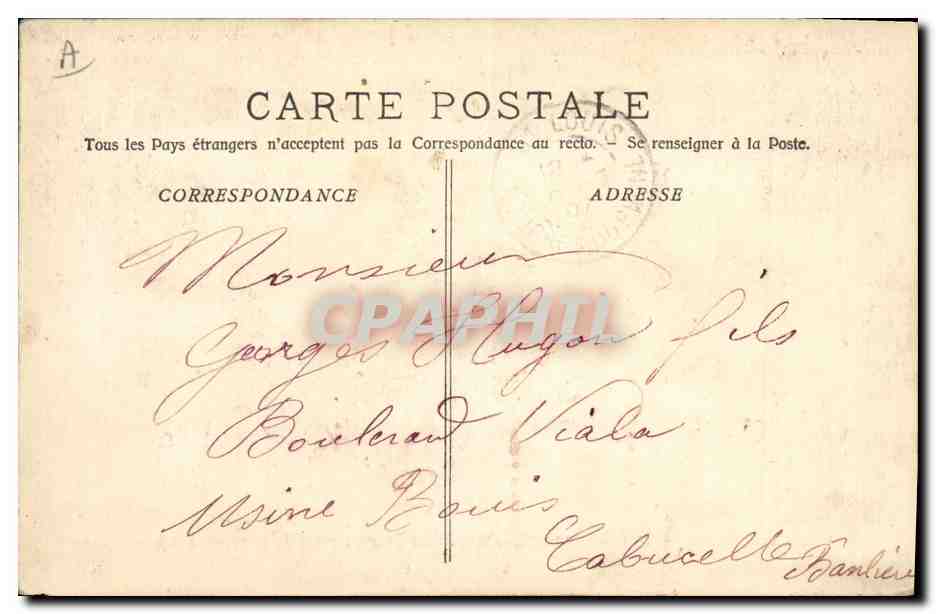 A
CARTE POSTALE
Tous les Pays étrangers n'acceptent pas la Correspondance au recto. - Se renseigner à la Poste.
CORRESPONDANCE
ADRESSE
LOUIS
Monsieur
CPAPHIL
Georges Hugon fils
Boulevard Viala
Usine Bouis
Cabucelle Banlieue